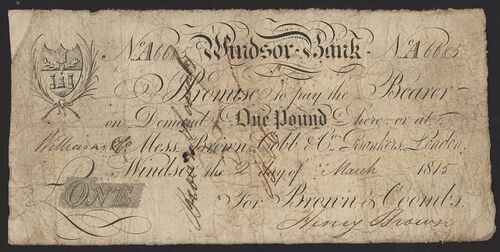 No. A6685 Windsor Bank No. A6685
I Promise to pay the Bearer
on Demand One Pound here, or at
Williams & Co. Messrs. Brown, Cobb & Co. Bankers, London.
Windsor the 2 day of March 1815
£ONE For Brown & Coombs.
Henry Brown